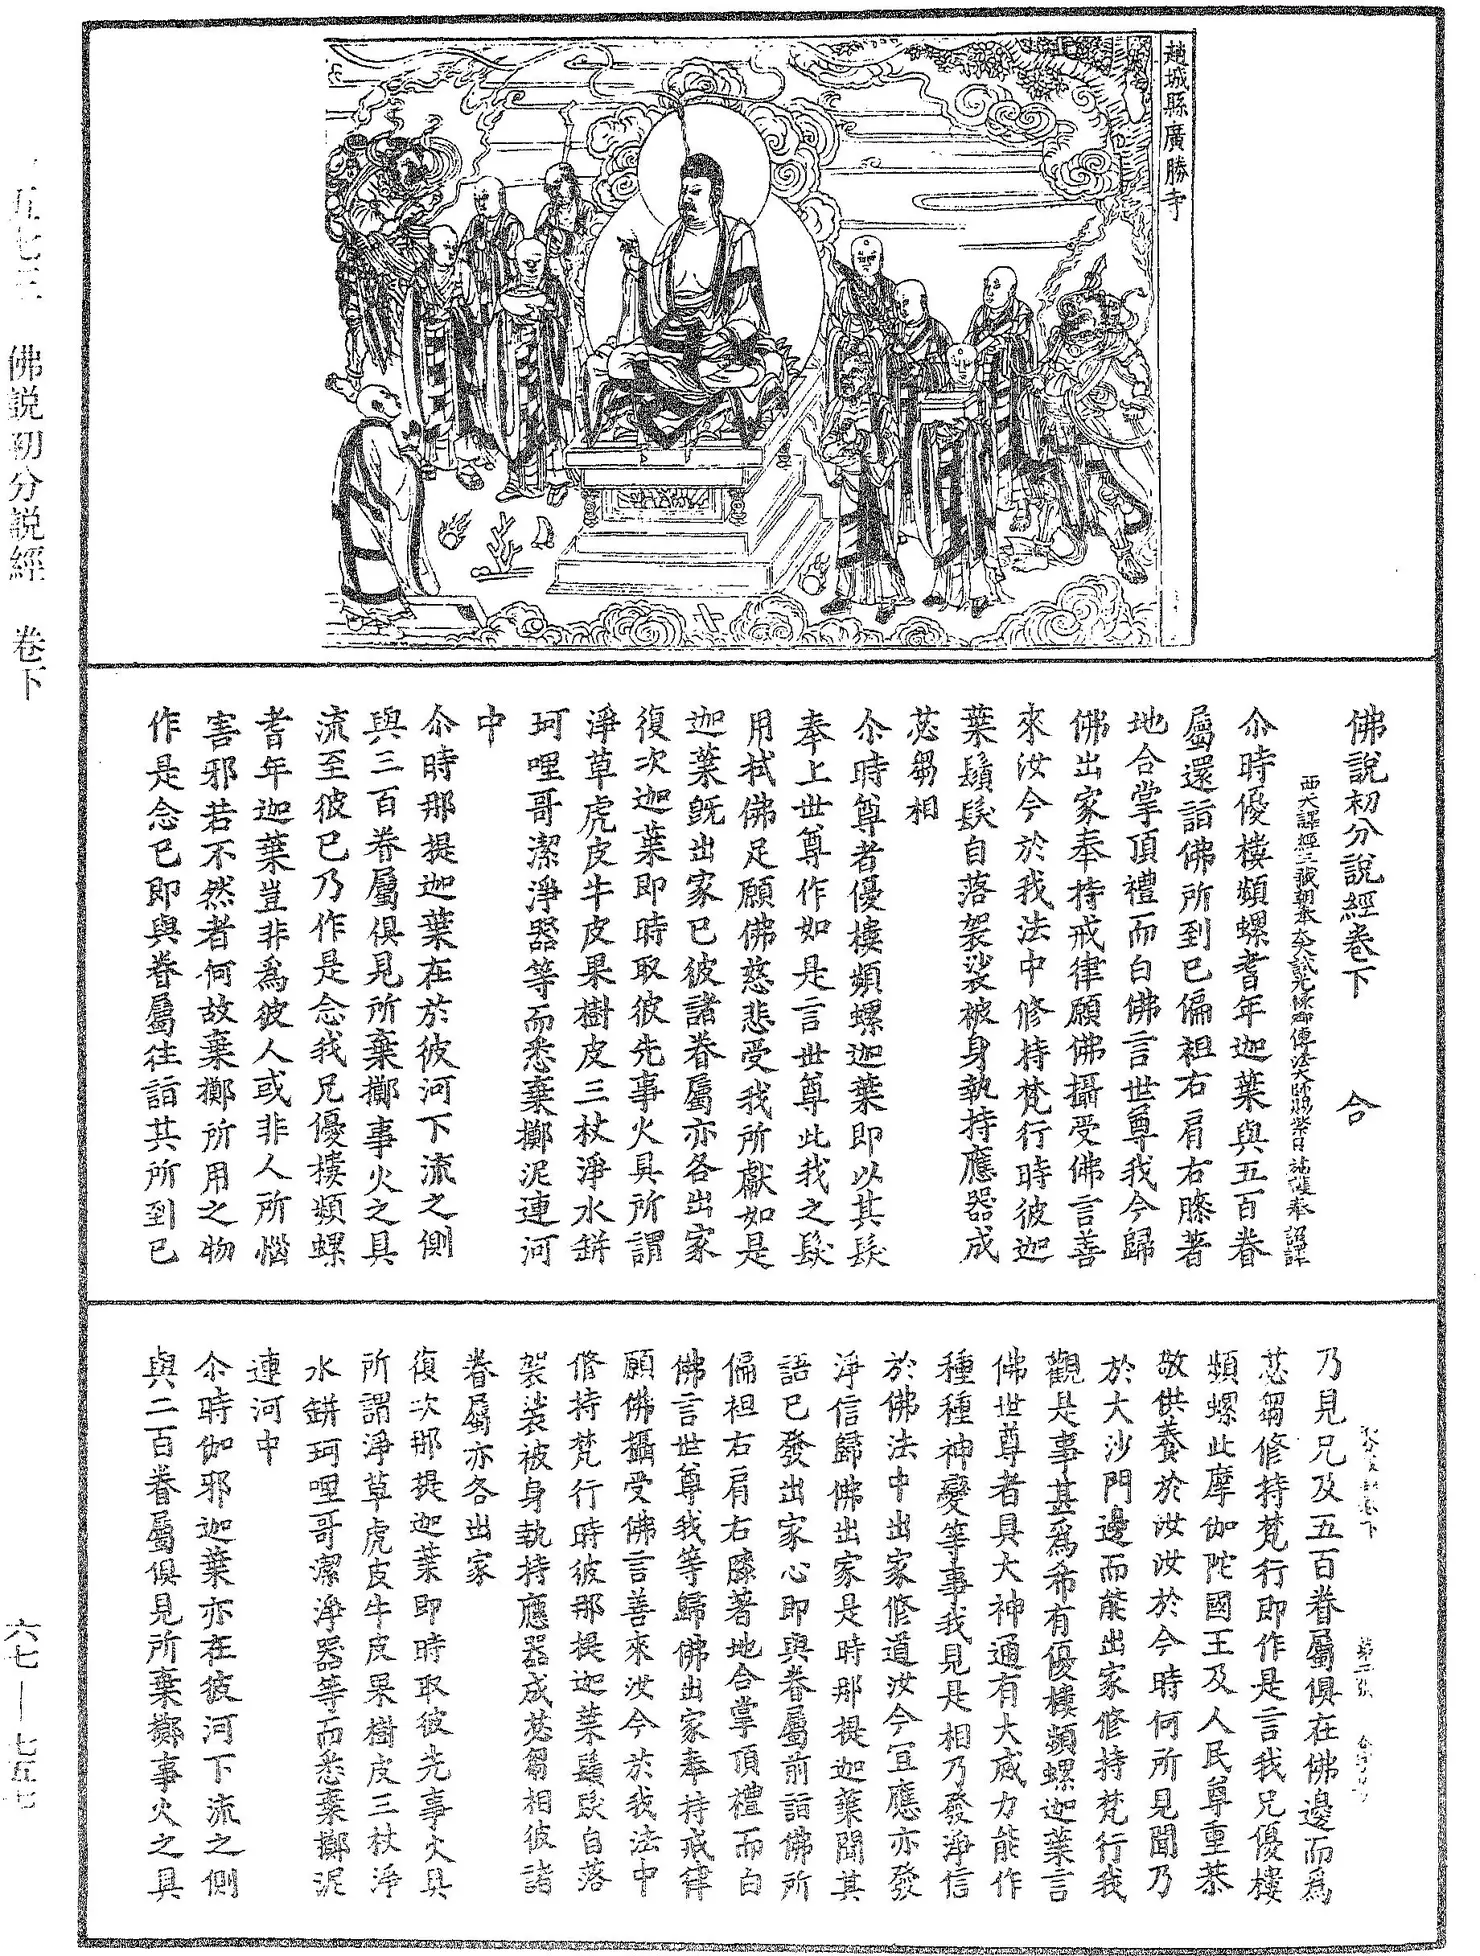 趙城縣廣勝寺
佛說初分說經卷下　合
西天譯經三藏朝奉大夫試光祿卿傳法大師賜紫臣施護奉 詔譯
尒時優樓頻螺耆年迦葉與五百眷
屬還詣佛所到已偏袒右肩右膝著
地合掌頂禮而白佛言世尊我今歸
佛出家奉持戒律願佛攝受佛言善
來汝今於我法中修持梵行時彼迦
葉鬚髮自落袈裟被身執持應器成
苾芻相
尒時尊者優樓頻螺迦葉即以其髮
奉上世尊作如是言世尊此我之髮
用拭佛足願佛慈悲受我所獻如是
迦葉旣出家已彼諸眷屬亦各出家
復次迦葉即時取彼先事火具所謂
淨草虎皮牛皮果樹皮三杖淨水缾
珂哩哥潔淨器等而悉棄擲泥連河
中
尒時那提迦葉在於彼河下流之側
與三百眷屬俱見所棄擲事火之具
流至彼已乃作是念我兄優樓頻螺
耆年迦葉豈非爲彼人或非人所惱
害邪若不然者何故棄擲所用之物
作是念已即與眷屬往詣其所到已
第二張
乃見兄及五百眷屬俱在佛邊而爲
苾芻修持梵行即作是言我兄優樓
頻螺此摩伽陀國王及人民尊重恭
敬供養於汝汝於今時何所見聞乃
於大沙門邊而能出家修持梵行我
觀是事甚爲希有優樓頻螺迦葉言
佛世尊者具大神通有大威力能作
種種神變等事我見是相乃發淨信
於佛法中出家修道汝今宜應亦發
淨信歸佛出家是時那提迦葉聞其
語已發出家心即與眷屬前詣佛所
偏袒右肩右膝著地合掌頂禮而白
佛言世尊我等歸佛出家奉持戒律
願佛攝受佛言善來汝今於我法中
修持梵行時彼那提迦葉鬚髮自落
袈裟被身執持應器成苾芻相彼諸
眷屬亦各出家
復次那提迦葉即時取彼先事火具
所謂淨草虎皮牛皮果樹皮三杖淨
水缾珂哩哥潔淨器等而悉棄擲泥
連河中
尒時伽邪迦葉亦在彼河下流之側
與二百眷屬俱見所棄擲事火之具
一五七三　佛說初分說經　卷下
六七—七五七